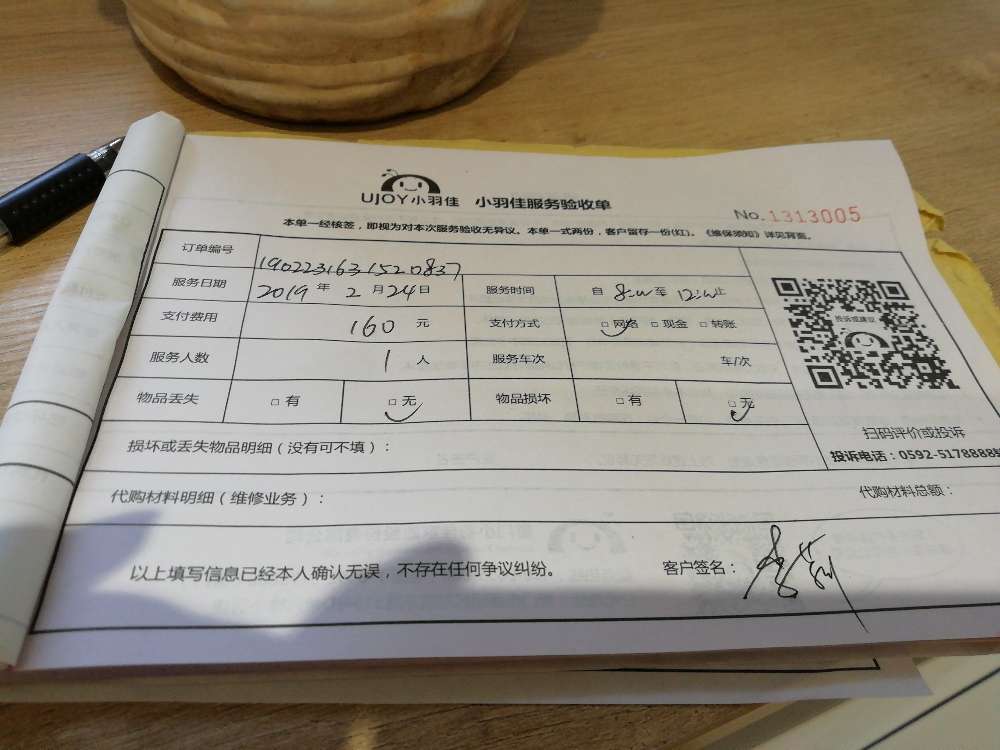 UJOY小羽佳 小羽佳服务验收单
No.1313005
本单一经核签，即视为对本次服务验收无异议。本单一式两份，客户留存一份(红)。《维保须知》详见背面。
订单编号 1902231631520837
服务日期 2019年2月24日 服务时间 自8:00至12:00止
支付费用 160元 支付方式 □网络 □现金 □转账
服务人数 1人 服务车次 车/次
物品丢失 □有 □无 物品损坏 □有 □无
投诉或建议
扫码评价或投诉
投诉电话：0592-5178888
损坏或丢失物品明细（没有可不填）：
代购材料明细（维修业务）： 代购材料总额：
以上填写信息已经本人确认无误，不存在任何争议纠纷。 客户签名：李莉